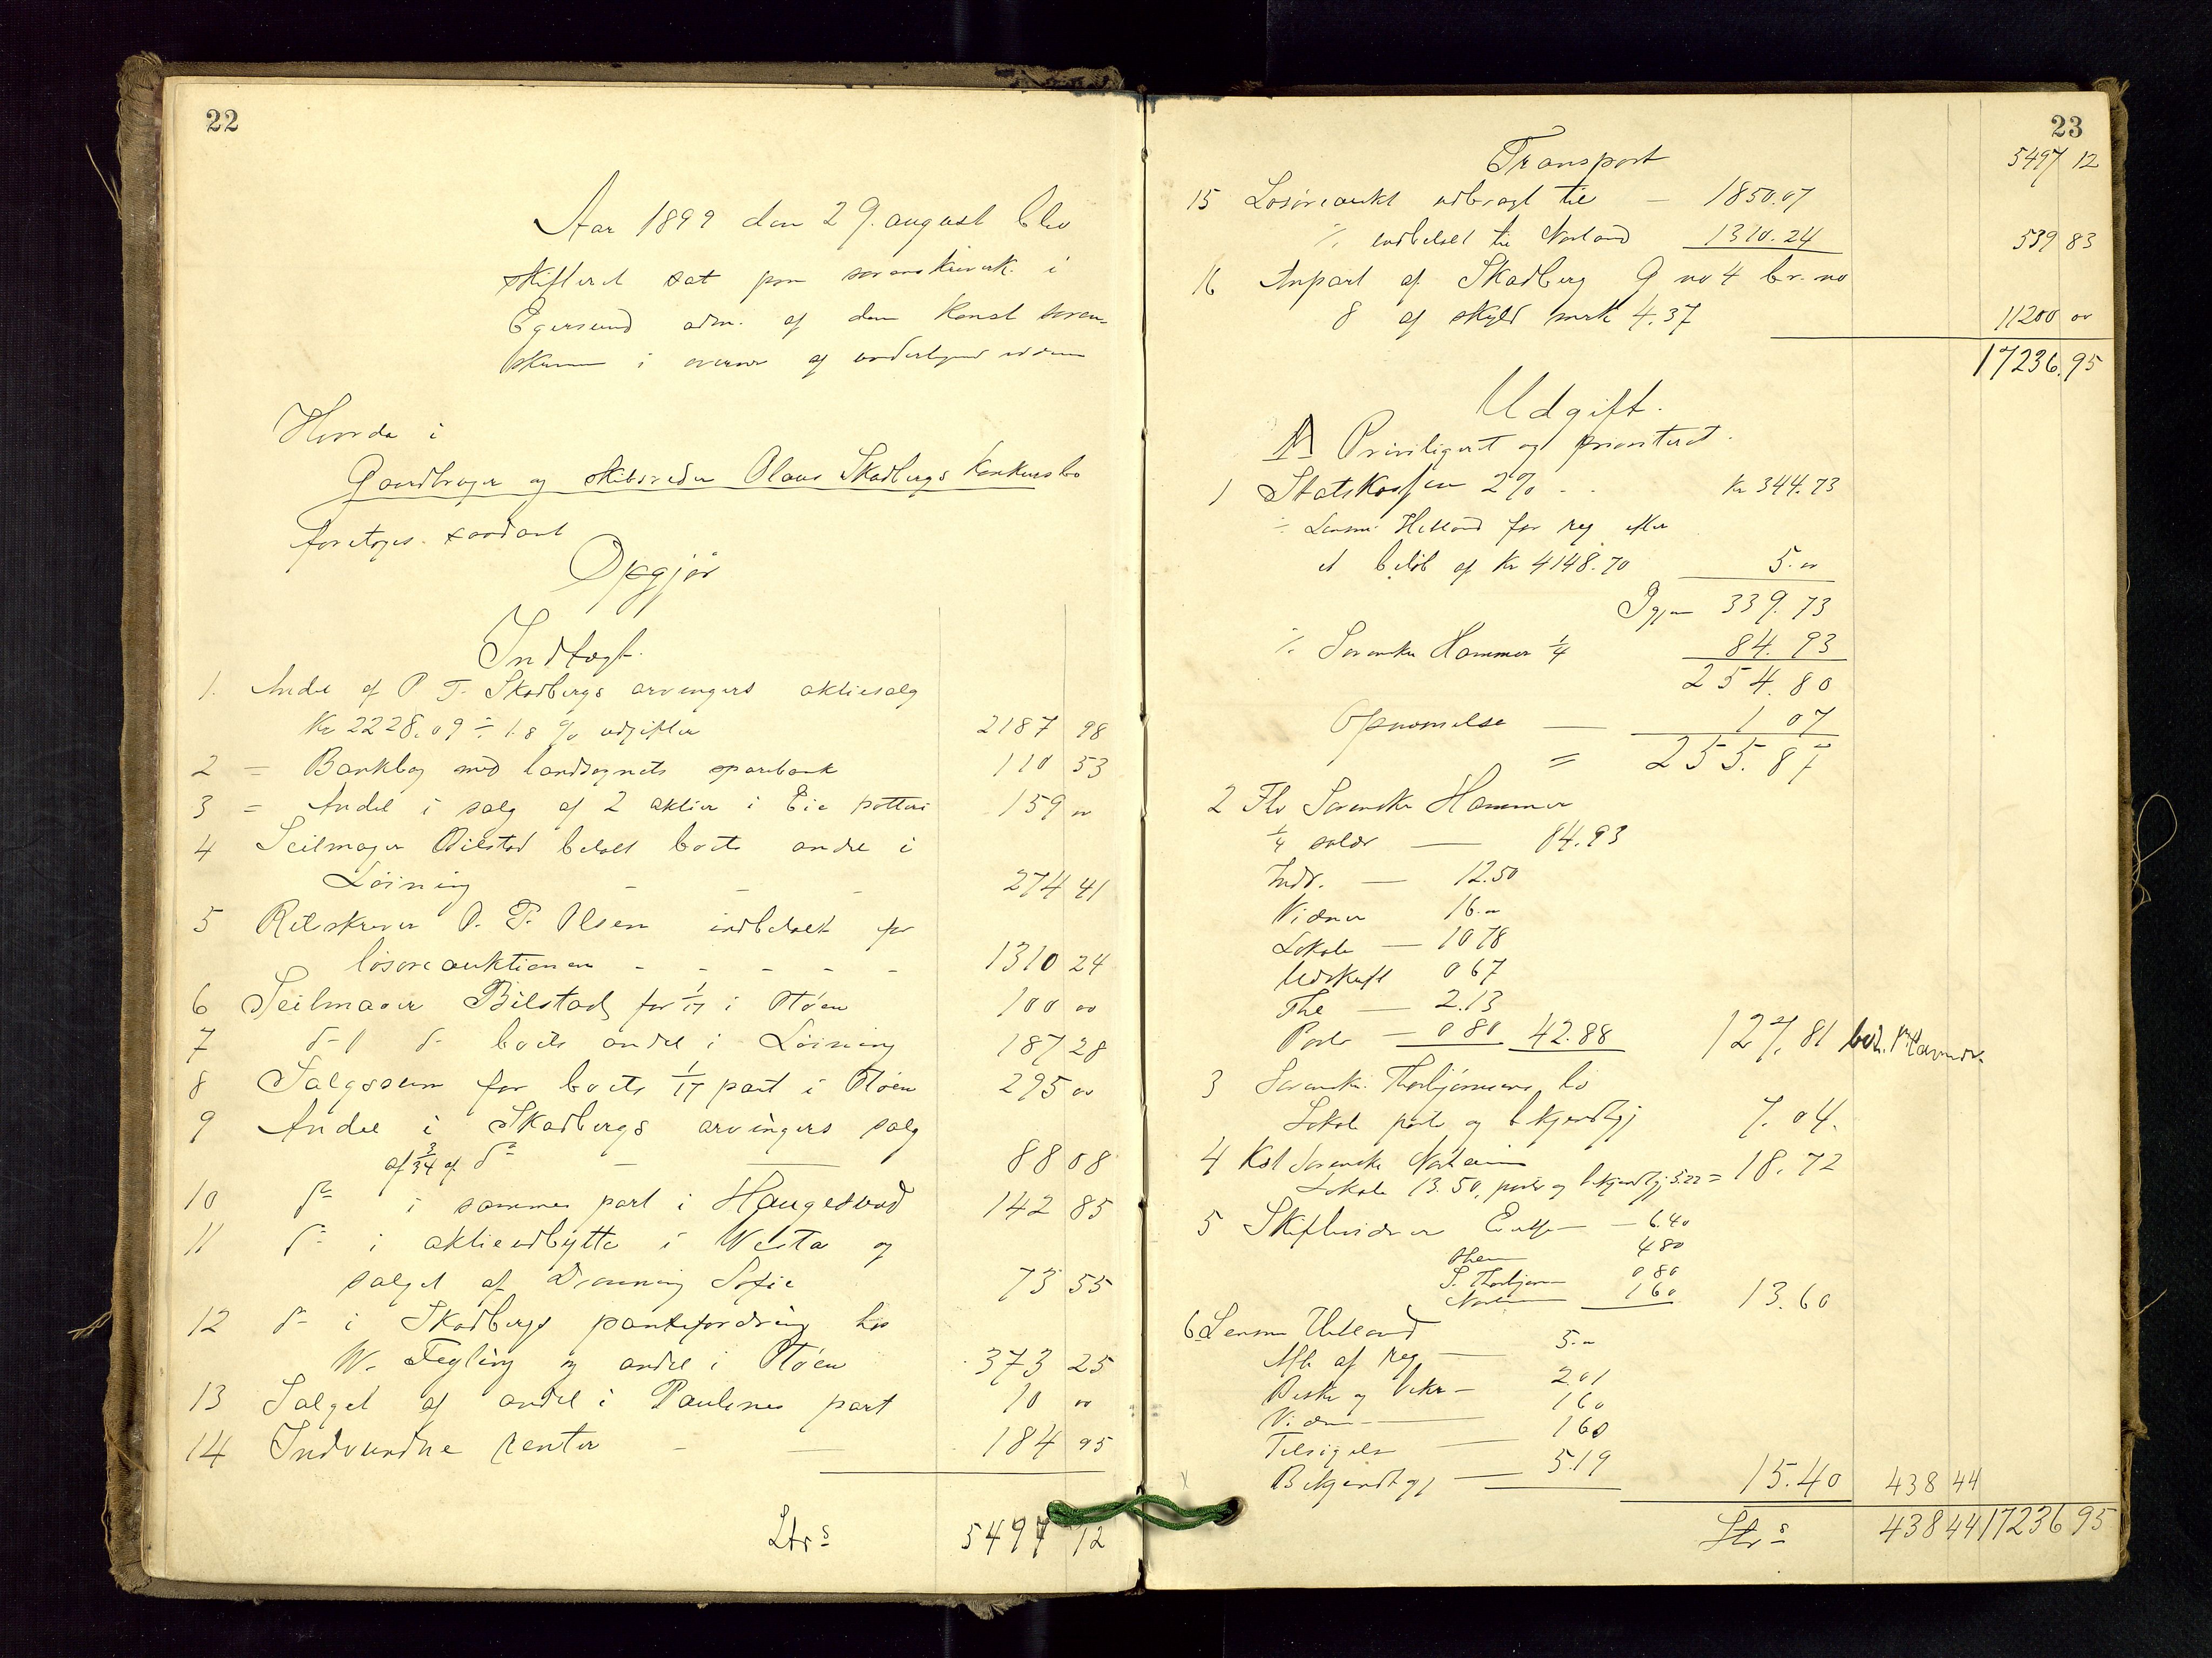 22
Aar 1899 den 29. august blev
skifteret sat paa sorenskriverk. i
Egersund adm. af den konst soren-
skriver i overvær af undertegnede vidner
Hvorda i
Gaardbruger og skibsreder Olaus Skadbergs konkursbo
foretoges saadant
Opgjør
Indtægt.
1. Andel af P T. Skadbergs arvingers aktiesalg
Kr 2228.09 ÷ 1.8 % udgifter 2187 98
2 = Bankbog med landsognets sparebank 110 53
3 = Andel i salg af 2 aktier i Eie potteri 159 00
4 Seilmager Bilstad betalt boets andel i
Løining - - - 274 41
5 Retsskriver O. T. Olsen indbetalt for
løsøreauktionen - - - - - 1310 24
6 Seilmager Bilstad for 1/17 i Støen 100 00
7 do do boets andel i Løining 187 28
8 Salgssum for boets 1/17 part i Støen 295 00
9 Andel i Skadbergs arvingers salg
af 3/34 af do — — 88 08
10 do i sammes part i Haugesund 142 85
11 do i aktieudbytte i Vesta og
salget af Dronning Sofie 73 55
12 do i Skadbergs pantefordring hos
W. Tegling og andel i Støen 373 25
13 Salget af andel i Paulines part 10 00
14 Indvundne renter - — 184 95
Ltrs 5497 12
23
Transport 5497 12
15 Løsøreaukt udbragt til — 1850.07
% indbetalt til Norland 1310.24 539 83
16 Anpart af Skadberg G no 4 br. no
8 af skyld mark 4.37 11200 00
17236.95
Udgift.
A Priviligeret og prioriteret.
1 Statskassen 2% - - Kr 344.73
÷ Lensm. Helland for reg efter
et beløb af Kr 4148.70 5.00
Igjen 339.73
% Sorenskr Hammer 1/4 84.93
254.80
Opnævnelse — 1 07
= 255.87
2 Fhv Sorenskr Hammer
1/4 salær — 84.93
Indr. — 12.50
Vidner 16.00
Lokale — 10 78
Udskrift 0 67
The — 2.13
Porto — 0 80 42.88 127.81 bet. Hammer
3 Sorenskr. Thorbjørnsens bo
Lokale porto og bekjendtgj 7.04.
4 Kst Sorenskr Norheim
Lokale 13.50, porto og bekjendtgj 5.22 = 18.72
5 Skiftevidner — 6.40
4 80
S. Thorbjørn 0 80
1 60 13.60
6 Lensm Helland
Afh af reg — 5.00
Besk og bekr — 2.01
Vidner — 1 60
Tilsigelse — 1 60
Bekjendtgj — 5.19 15.40 438 44
Ltrs 438 44 17236 95